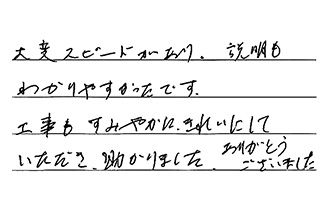 大変スピードがあり、説明も
わかりやすかったです。
工事も すみやかに、きれいにして
いただき、助かりました。ありがとう
ございました